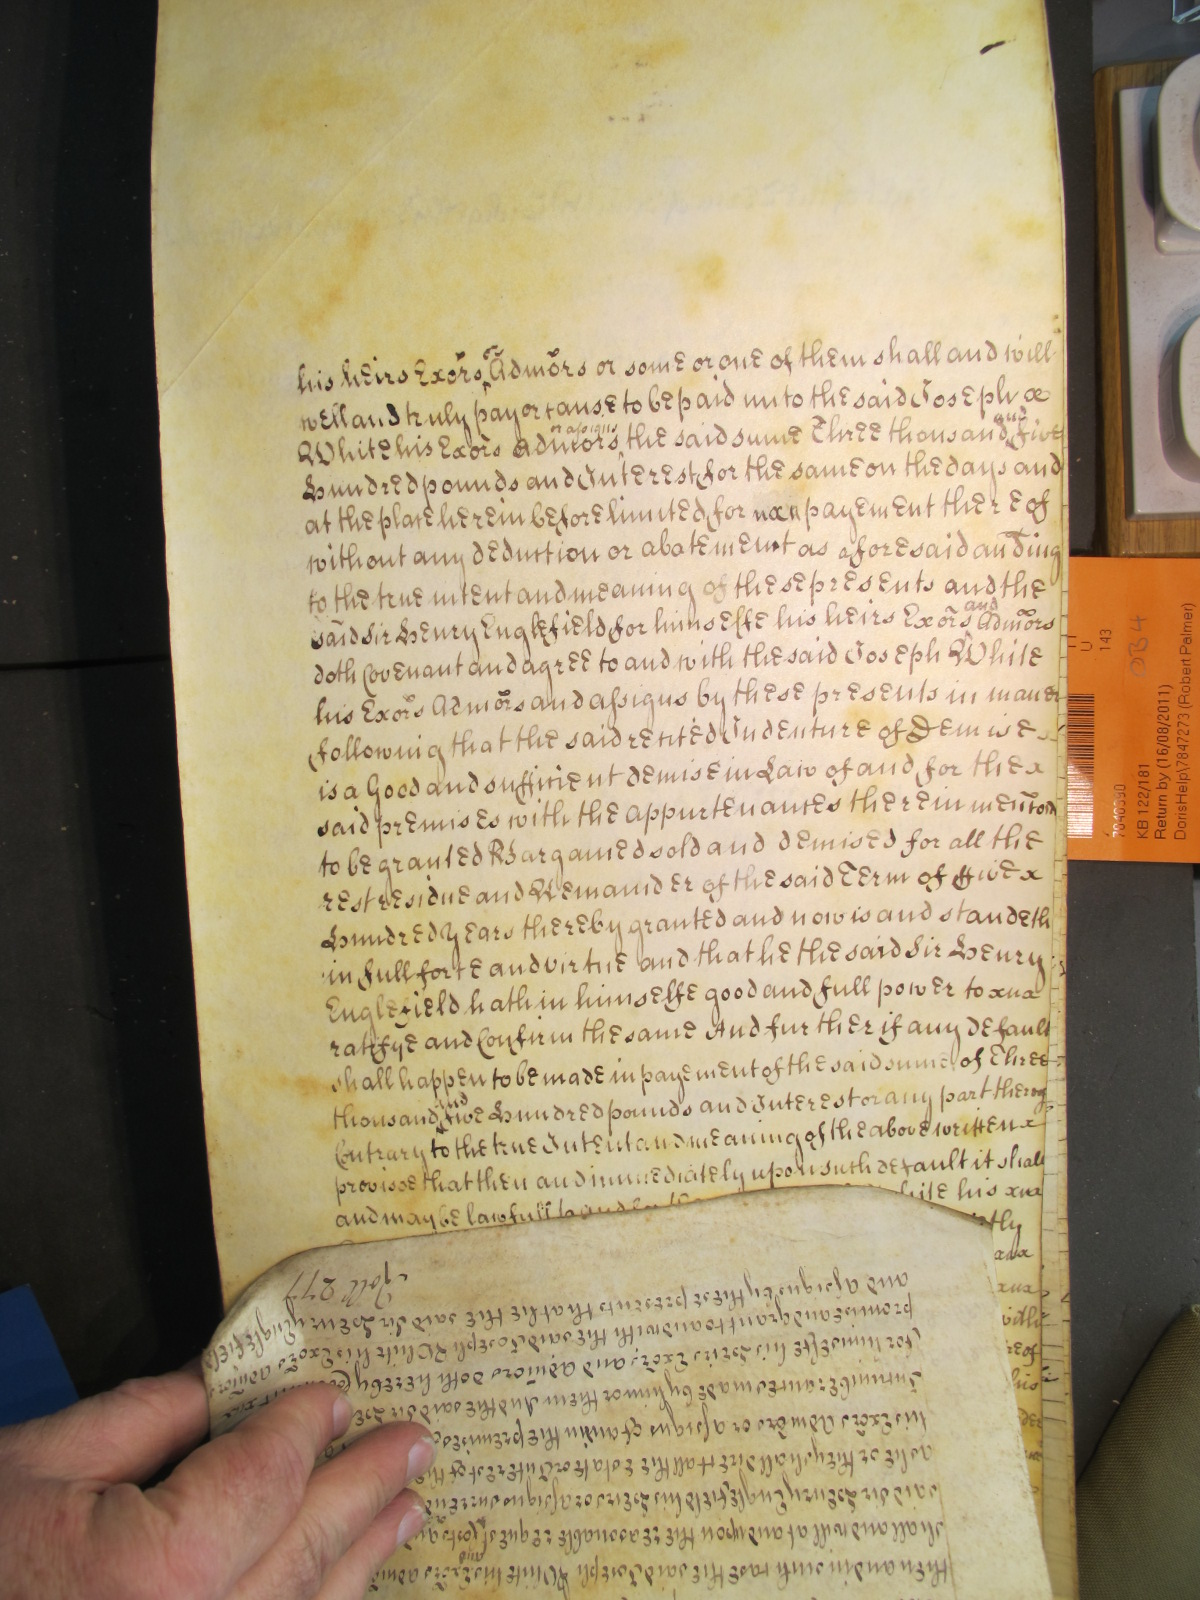 his heirs Exõrs & Admõrs or some or one of them shall and will
well and truly pay or cause to be paid unto the said Joseph x
White his Exors Admors or assigns the said sume Three thousand and five
Hundred pounds and Interest for the same on the days and
at the place herein before limited for payement thereof
without any deduction or abatement as aforesaid
to the true intent and meaning of these presents and the
said Sir Henry Englefield for himselfe his heirs Exõrs and Admõrs
doth Covenant and agree to and with the said Joseph White
his Exõrs Admõrs and assigns by these presents in maner
following that the said recited Indenture of Demise
is a Good and sufficient demise in Law of and for the x
said premises with the appurtenances therein menc̃oned
to be granted Bargained sold and demised for all the
rest residue and Remainder of the said Term of five x
Hundred Years thereby granted and now is and standeth
in full force and virtue and that he the said Sir Henry
Englefield hath in himselfe good and full power to
ratifye and Confirm the same And further if any default
shall happen to be made in payement of the said sume of Three
thousand and five Hundred pounds and Interest or any part thereof
Contrary to the true Intent and meaning of the above written x
provisoe that then and immediately upon such default it shall
and may be lawfull to and for the White his
Roll 277
and assigns by these presents that he the said Sir Henry Englefield
promise and grant to and with the said Joseph White his Exõrs Admõrs
for himselfe his Heirs Exõrs and Admõrs doth hereby Covenant
Incumberances made by him or them And the said Sir
his Exõrs Admõrs or assigns of and in the premises
as he or they shall direct all the Estate or Interest of the
said Sir Henry Englefield his Heirs or assigns surrender
shall and will at and upon the reasonable request Costs and
then and in such case the said Joseph White his Exõrs and Admõrs
KB 122/181
Return by (16/08/2011)
DorisHelp\7847273 (Robert Palmer)
143
U